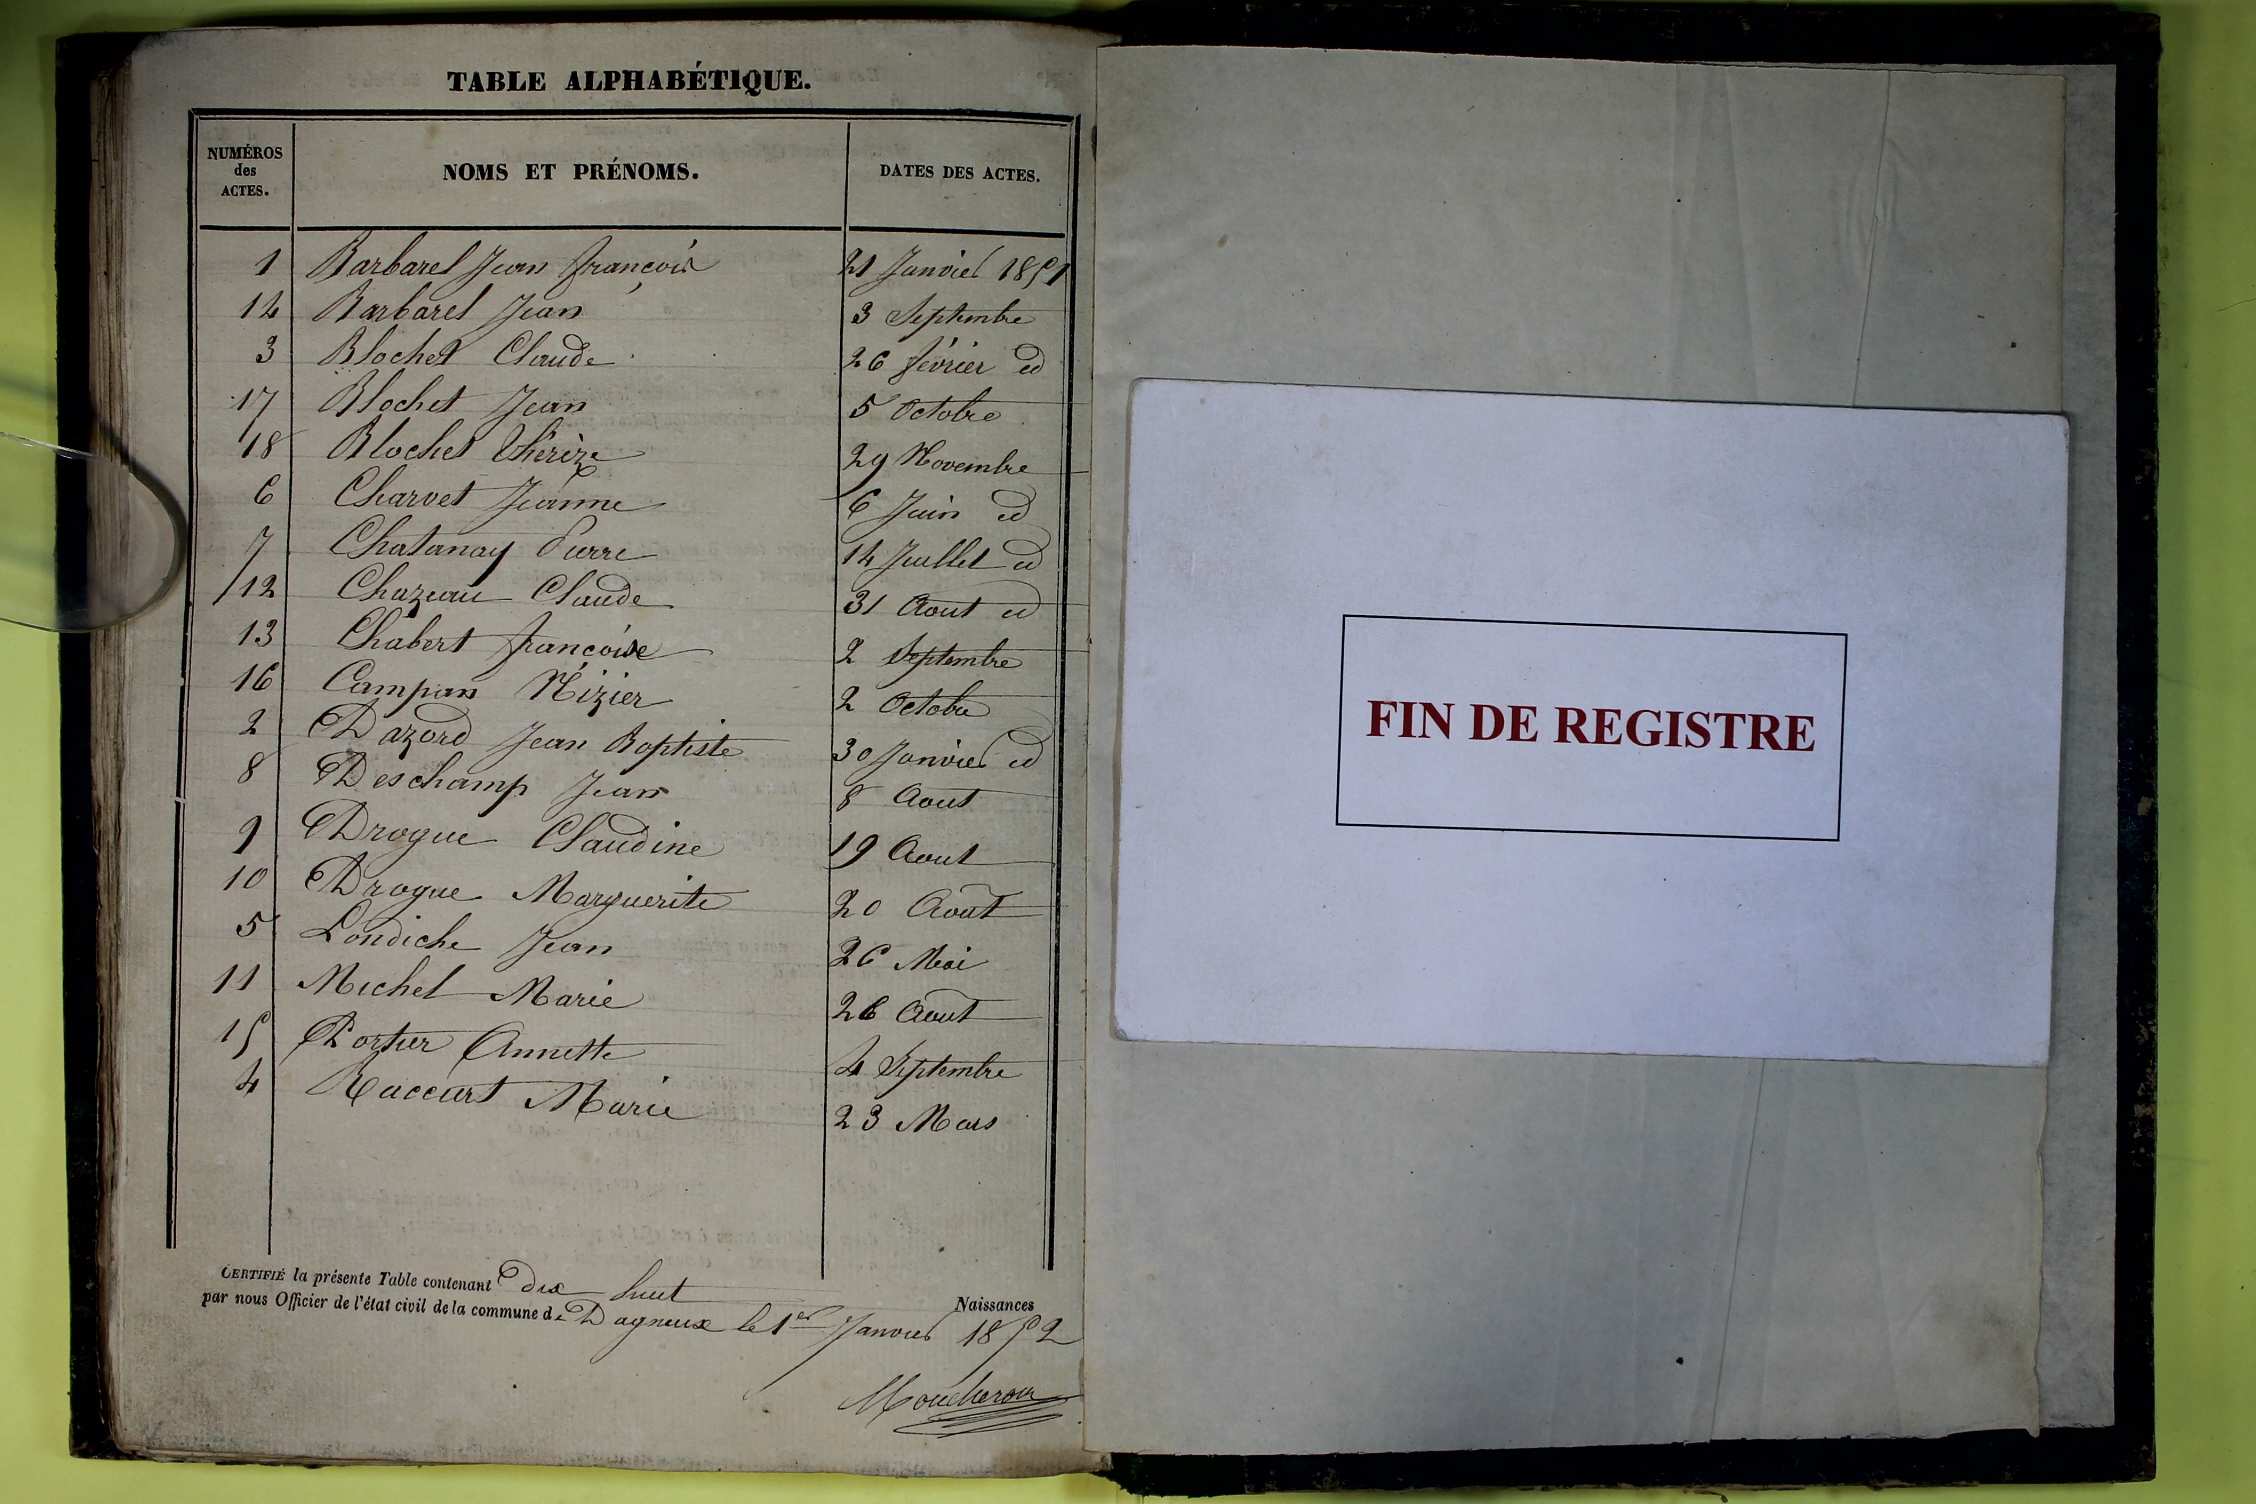 TABLE ALPHABÉTIQUE.
NUMÉROS des ACTES. NOMS ET PRÉNOMS. DATES DES ACTES.
1 Barbarel Jean François 21 Janvier 1851
14 Barbarel Jean 3 Septembre
3 Blochet Claude 26 février id
17 Blochet Jean 5 Octobre
18 Blochet Thérèze 29 Novembre
6 Charvet Jeanne 6 Juin id
7 Chatanay Pierre 14 Juillet id
12 Chazeau Claude 31 Aout id
13 Chabert françoise 2 Septembre
16 Campan Nizier 2 Octobre
2 Dazord Jean Baptiste 30 Janvier id
8 Deschamp Jean 8 Aout
9 Drogue Claudine 19 Aout
10 Drogue Marguerite 20 Aout
5 Londiche Jean 26 Mai
11 Michel Marie 26 Aout
15 Portier Annette 4 Septembre
4 Raccurt Marie 23 Mars
CERTIFIÉ la présente Table contenant Dix huit Naissances
par nous Officier de l'état civil de la commune de Dagneux le 1er Janvier 1852
Moucheron
FIN DE REGISTRE